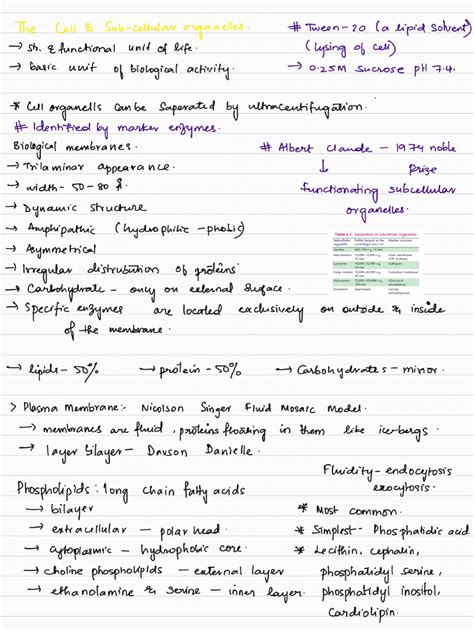 The Cell & Sub-cellular organelles.
→ St. & functional unit of life.
→ basic unit of biological activity.
# Tween-20 (a lipid solvent)
(lysing of cell)
→ 0.25M sucrose pH 7.4.
* Cell organells canbe saperated by ultracentifugation.
# Identified by marker enzymes.
Biological membranes.
→ Trilaminar appearance.
→ width - 50-80 Å.
→ Dynamic structure
→ Amphipathic (hydrophilic - phobic)
→ Asymmetrical
→ Irregular distribution of proteins
→ Carbohydrate - only on external surface.
→ Specific enzymes are located exclusively on outside & inside
of the membrane.
# Albert Claude - 1974 noble
↓ prize
functionating subcellular
organelles.
Subcellular
organelle
Marker enzyme
Nucleus
Mitochondria
Lysosome
Golgi complex
Microsomes
Cytoplasm
→ lipids - 50% → protein - 50% → Carbohydrates - minor.
> Plasma Membrane:- Nicolson Singer Fluid Mosaic Model.
→ membranes are fluid, proteins floating in them like ice-bergs.
→ layer bilayer - Davson Danielle.
Fluidity - endocytosis
exocytosis.
Phospholipids : long chain fatty acids
→ bilayer
→ extracellular - polar head.
→ cytoplasmic - hydrophobic core.
→ choline phospholipids - external layer
→ ethanolamine & serine - inner layer.
* Most common.
* Simplest - Phosphatidic acid.
* Lecithin, cephalin,
phosphatidyl serine,
phosphatidyl inositol,
Cardiolipin.